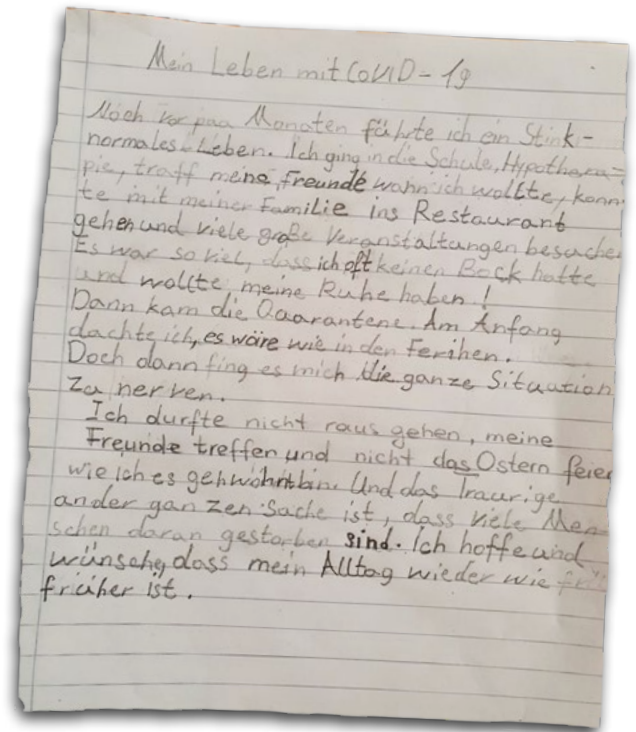 Mein Leben mit CoVID-19
Noch vor paa Monaten führte ich ein Stink-
normales Leben. Ich ging in die Schule, Hypothera=
pie, traff meine Freunde wann ich wollte, konn
te mit meiner Familie ins Restaurant
gehen und viele große Veranstaltungen besuche
Es war so viel, dass ich oft keinen Bock hatte
und wollte meine Ruhe haben!
Dann kam die Qaarantene. Am Anfang
dachte ich, es wäre wie in den Ferihen.
Doch dann fing es mich die ganze Situation
zu nerven.
Ich durfte nicht raus gehen, meine
Freunde treffen und nicht das Ostern feier
wie ich es gehwöhnt bin. Und das Traurige
an der ganzen Sache ist, dass viele Men
schen daran gestorben sind. Ich hoffe und
wünsche, dass mein Alltag wieder wie
früher ist.